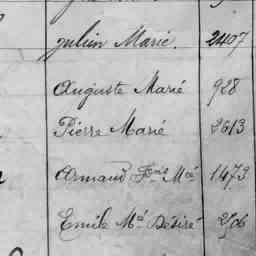 Julien Marié. 2407
Auguste Marié 928
Pierre Marié 2613
Armand Fois Mié 1473
Emile Mié Désiré 2506